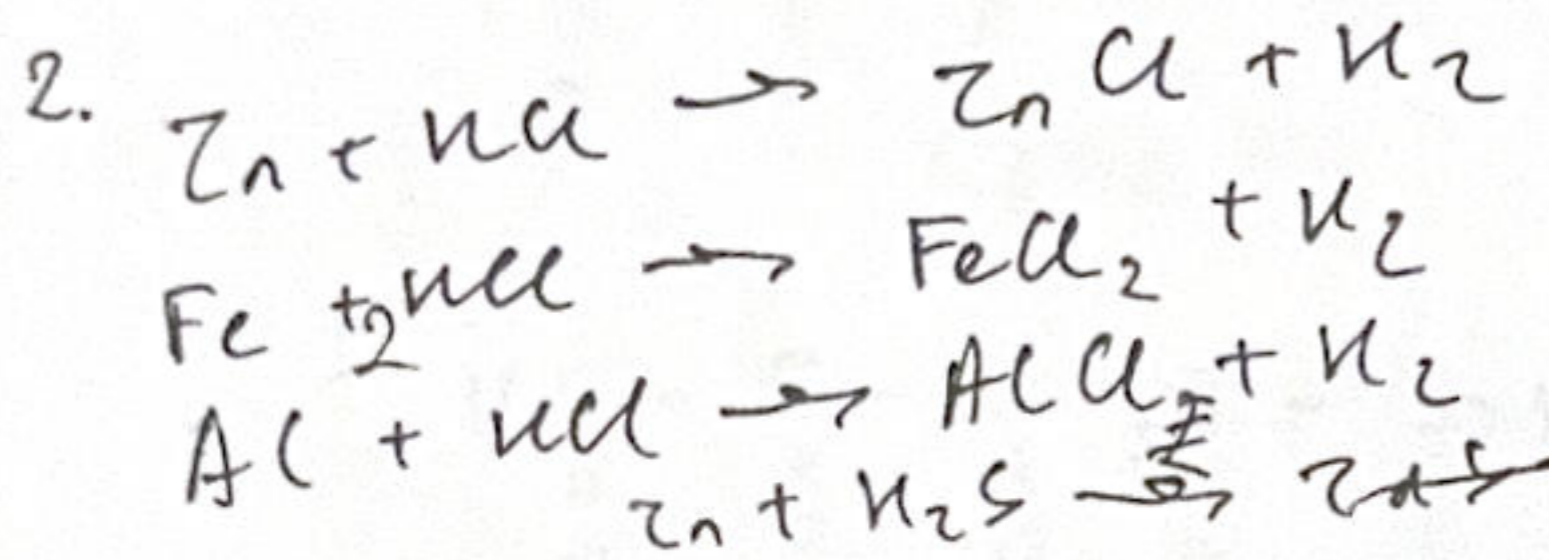 2. Zn + HCl → ZnCl + H2
Fe + 2HCl → FeCl2 + H2
Al + HCl → AlCl + H2
Zn + H2S →